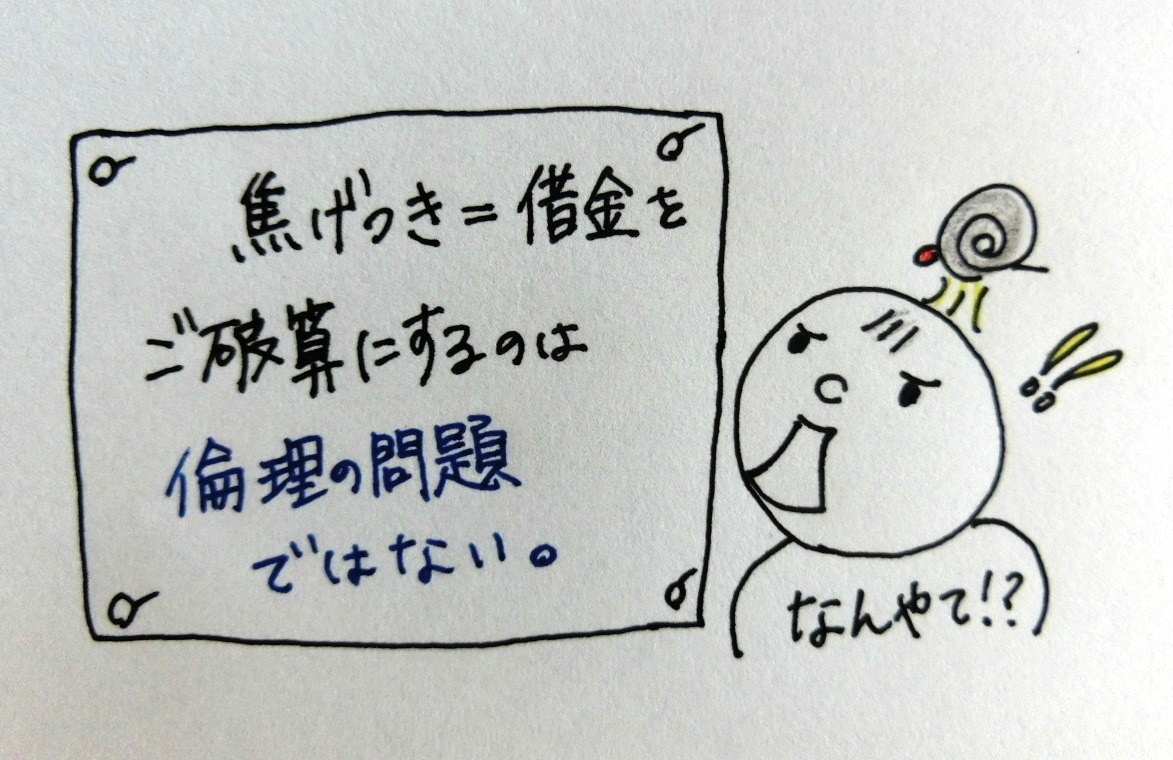 焦げつき=借金を
ご破算にするのは
倫理の問題
ではない。
なんやて!?